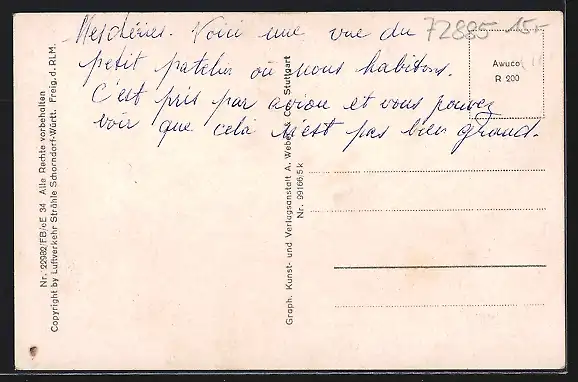 Mes chéries. Voici une vue du
petit patelin où nous habitons.
C'est pris par avion et vous pouvez
voir que celà n'est pas bien grand.
72885 15,-
Awuco
R 200
Nr. 22982/FB/eE 34 Alle Rechte vorbehalten
Copyright by Luftverkehr Strähle Schorndorf-Württ. Freig. d. RLM.
Graph. Kunst- und Verlagsanstalt A. Weber & Co., Stuttgart
Nr. 99166,5 k